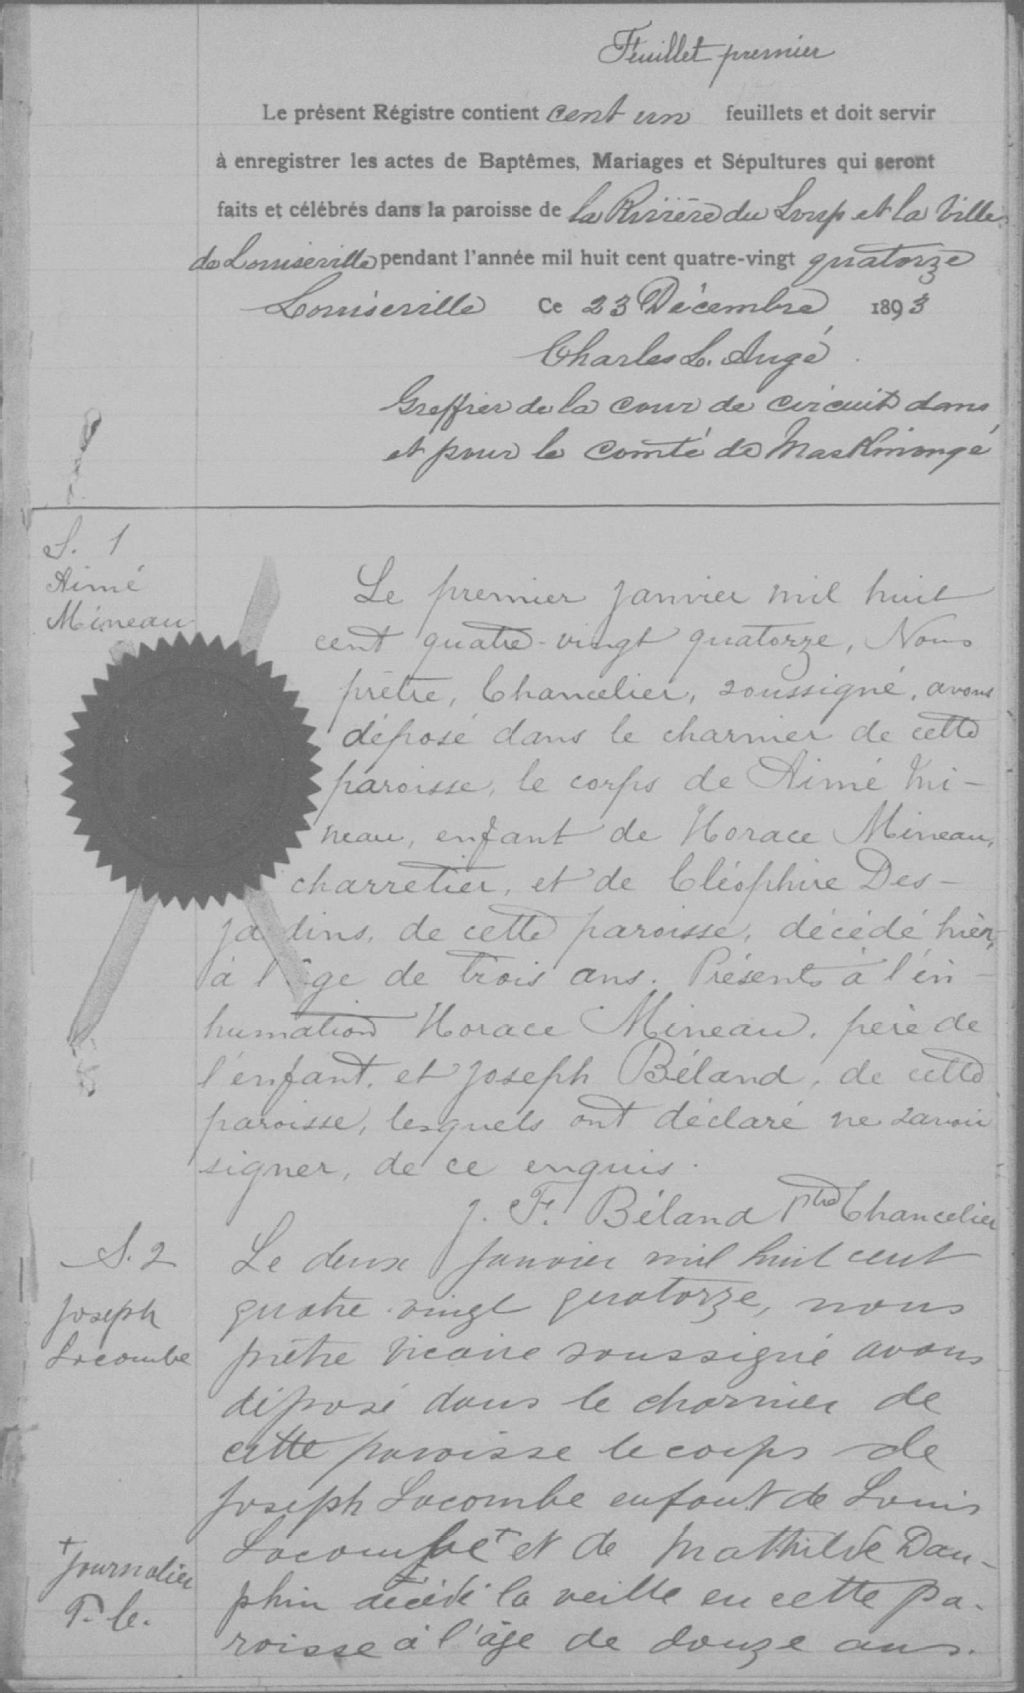 Feuillet premier
Le présent Régistre contient cent un feuillets et doit servir
à enregistrer les actes de Baptêmes, Mariages et Sépultures qui seront
faits et célébrés dans la paroisse de la Rivière du Loup et la Ville
de Louiseville pendant l'année mil huit cent quatre-vingt quatorze
Louiseville Ce 23 Décembre 1893
Charles L. Augé
Greffier de la cour de circuit dans
et pour le comté de Maskinongé
S. 1
Aimé
Mineau
Le premier janvier mil huit
cent quatre-vingt quatorze, Nous
prêtre, Chancelier, soussigné, avons
déposé dans le charnier de cette
paroisse, le corps de Aimé Mi-
neau, enfant de Horace Mineau,
charretier, et de Cléophire Des-
ja dins, de cette paroisse, décédé hier,
à l'âge de trois ans. Présents à l'in-
humation Horace Mineau, père de
l'enfant, et Joseph Béland, de cette
paroisse, lesquels ont déclaré ne savoir
signer, de ce enquis.
J. F. Béland Ptre Chancelier
S. 2
Joseph
Lacombe
Le deux janvier mil huit cent
quatre-vingt quatorze, nous
prêtre vicaire soussigné avons
déposé dans le charnier de
cette paroisse le corps de
Joseph Lacombe enfant de Louis
Lacombe+ et de Mathilde Dau-
phin décédé la veille en cette pa-
roisse à l'âge de douze ans.
+
journalier